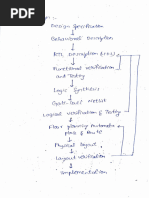 Design Specification
Behavioral Description
RTL Description (HDL)
Functional verification
and Testing
Logic Synthesis
Gate-level Netlist
Logical verification & Testing
Floor planning Automatic
place & Route
Physical layout
Layout verification
Implementation